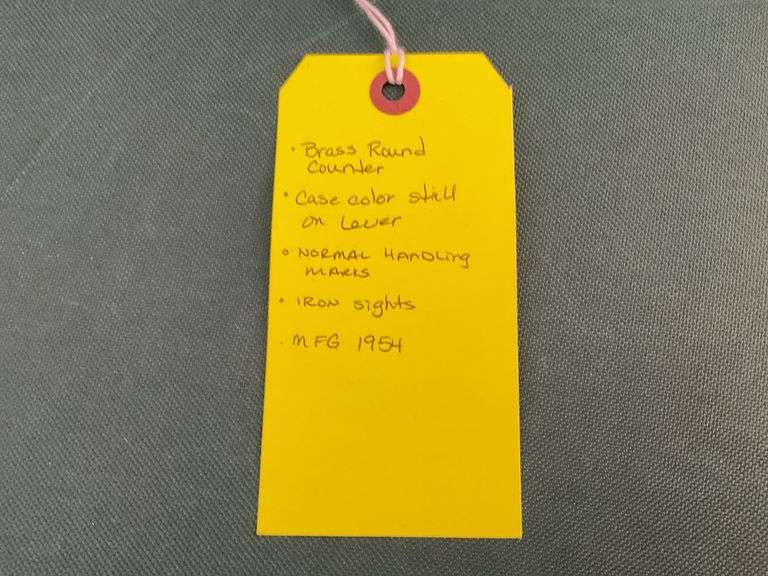 • Brass Round
Counter
• Case color still
on Lever
• NORMAL HANDLing
MARKS
• IRON sights
. MFG 1954